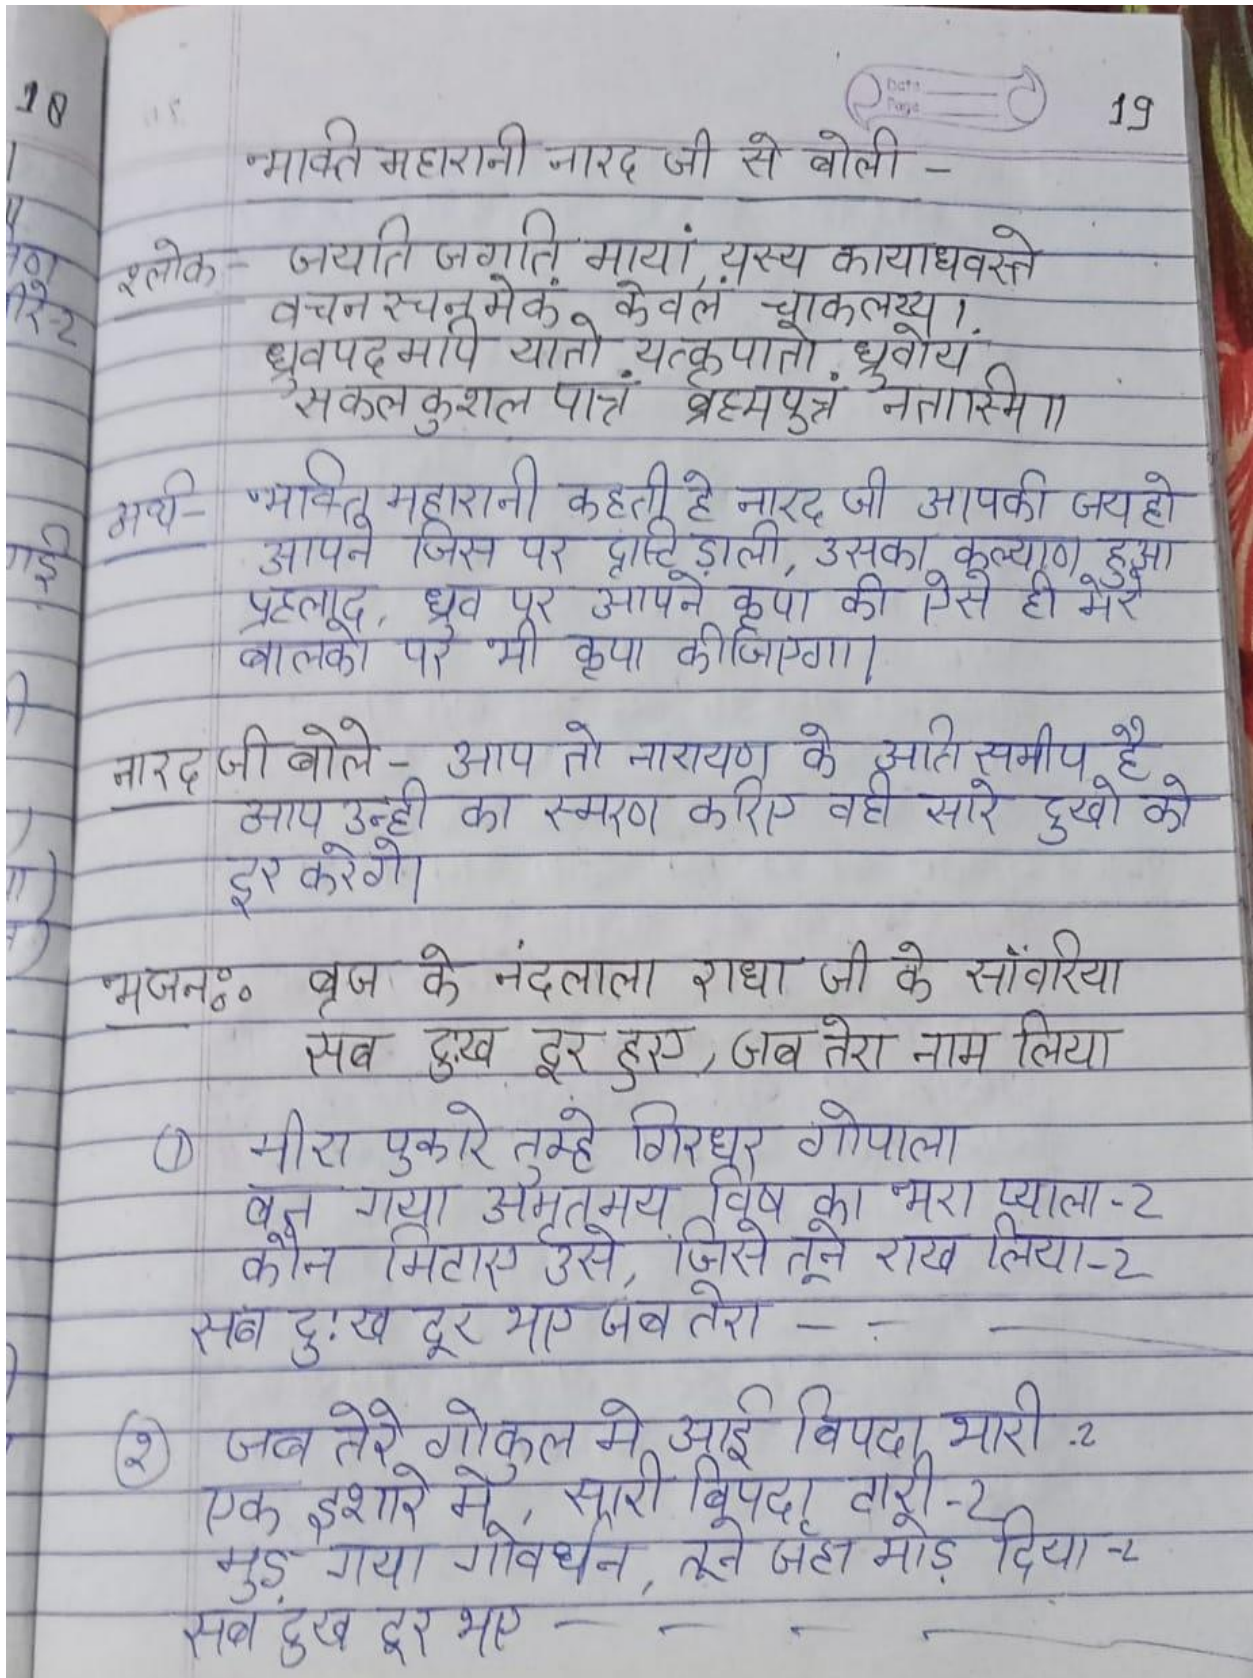 18
Date
Page
19
भक्ति महारानी नारद जी से बोली -
श्लोक - जयति जगति मायां, यस्य कायाधवस्ते
वचन रचनमेकं केवलं चाकलय्य।
ध्रुवपदमपि यातो यत्कृपातो ध्रुवोयं
सकलकुशल पात्रं ब्रह्मपुत्रं नतास्मि॥
अर्थ - भक्ति महारानी कहती हे नारद जी आपकी जय हो
आपने जिस पर दृष्टि ड़ाली, उसका कल्याण हुआ
प्रहलाद, ध्रुव पर आपने कृपा की ऐसे ही मेरे
बालको पर भी कृपा कीजिएगा।
नारद जी बोले - आप तो नारायण के अति समीप है
आप उन्ही का स्मरण करिए वही सारे दुखो को
दूर करेगे।
भजनः॰ बृज के नंदलाला राधा जी के साँवरिया
सब दुःख दूर हुए, जब तेरा नाम लिया
① मीरा पुकारे तुम्हे गिरधर गोपाला
बन गया अमृतमय विष का भरा प्याला-2
कौन मिटाए उसे, जिसे तूने राख लिया-2
सब दुःख दूर भए जब तेरा - - -
② जब तेरे गोकुल मे आई विपदा भारी -2
एक इशारे मे, सारी विपदा टारी-2
मुड़ गया गोवर्धन, तूने जहाँ मोड़ दिया -2
सब दुख दूर भए - - - -